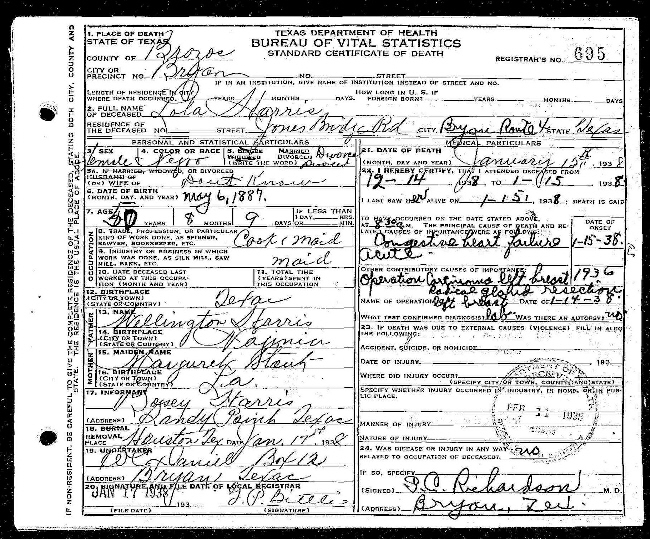 TEXAS DEPARTMENT OF HEALTH
BUREAU OF VITAL STATISTICS
STANDARD CERTIFICATE OF DEATH
1. PLACE OF DEATH
STATE OF TEXAS
COUNTY OF Brazos
REGISTRAR'S NO. 695
CITY OR
PRECINCT NO. Bryan NO. STREET
IF IN AN INSTITUTION, GIVE NAME OF INSTITUTION INSTEAD OF STREET AND NO.
LENGTH OF RESIDENCE IN CITY
WHERE DEATH OCCURRED YEARS MONTHS DAYS.
HOW LONG IN U. S. IF
FOREIGN BORN? YEARS MONTHS DAYS
2. FULL NAME
OF DECEASED Lola Harris
RESIDENCE OF
THE DECEASED NO. STREET Jones Bridge Rd CITY, Bryan Route 4 STATE Texas
PERSONAL AND STATISTICAL PARTICULARS
3. SEX 4. COLOR OR RACE 5. SINGLE MARRIED
WIDOWED DIVORCED
(WRITE THE WORD)
Female Negro Divorced
5A. IF MARRIED, WIDOWED, OR DIVORCED
HUSBAND OF
(OR) WIFE OF Don't Know
6. DATE OF BIRTH
(MONTH, DAY, AND YEAR) May 6, 1887.
7. AGE 50 YEARS 8 MONTHS 9 DAYS
IF LESS THAN
1 DAY HRS.
OR MIN.
OCCUPATION
8. TRADE, PROFESSION, OR PARTICULAR
KIND OF WORK DONE, AS SPINNER,
SAWYER, BOOKKEEPER, ETC. Cook & maid
9. INDUSTRY OR BUSINESS IN WHICH
WORK WAS DONE, AS SILK MILL, SAW
MILL, BANK, ETC. maid
10. DATE DECEASED LAST
WORKED AT THIS OCCUPATION
(MONTH AND YEAR)
11. TOTAL TIME
(YEARS) SPENT IN
THIS OCCUPATION
12. BIRTHPLACE
(CITY OR TOWN)
(STATE OR COUNTRY) Texas
FATHER
13. NAME Wellington Harris
14. BIRTHPLACE
(CITY OR TOWN)
(STATE OR COUNTRY)
MOTHER
15. MAIDEN NAME Margaret
16. BIRTHPLACE
(CITY OR TOWN)
(STATE OR COUNTRY) La.
17. INFORMANT Harris
(ADDRESS) Sandy Point Texas
18. BURIAL
REMOVAL
PLACE Houston Tex DATE Jan. 17th 1938
19. UNDERTAKER Box 12
(ADDRESS) Bryan, Texas
20. SIGNATURE AND FILE DATE OF LOCAL REGISTRAR
JAN 17 1938 193
(FILE DATE) (SIGNATURE)
MEDICAL PARTICULARS
21. DATE OF DEATH
(MONTH, DAY AND YEAR) January 15th 1938
22. I HEREBY CERTIFY, THAT I ATTENDED DECEASED FROM
12-14 TO 1-15 1938
I LAST SAW her ALIVE ON 1-15 1938; DEATH IS SAID
TO HAVE OCCURRED ON THE DATE STATED ABOVE,
THE PRINCIPAL CAUSE OF DEATH AND RELATED
CAUSES OF IMPORTANCE WERE AS FOLLOWS:
DATE OF
ONSET
Congestive heart failure 1-15-38.
acute
OTHER CONTRIBUTORY CAUSES OF IMPORTANCE
Operation Carcinoma left breast 1936
resection
NAME OF OPERATION left breast DATE OF 1-14-38.
WHAT TEST CONFIRMED DIAGNOSIS? Lab. WAS THERE AN AUTOPSY? no
23. IF DEATH WAS DUE TO EXTERNAL CAUSES (VIOLENCE) FILL IN ALSO
THE FOLLOWING:
ACCIDENT, SUICIDE, OR HOMICIDE
DATE OF INJURY 193
WHERE DID INJURY OCCUR?
(SPECIFY CITY OR TOWN, COUNTY, AND STATE)
SPECIFY WHETHER INJURY OCCURRED IN INDUSTRY, IN HOME, OR IN PUBLIC
PLACE.
FEB 1938
MANNER OF INJURY
NATURE OF INJURY
24. WAS DISEASE OR INJURY IN ANY WAY
RELATED TO OCCUPATION OF DECEASED? no
IF SO, SPECIFY
(SIGNED) Richardson M. D.
(ADDRESS) Bryan, Tex.